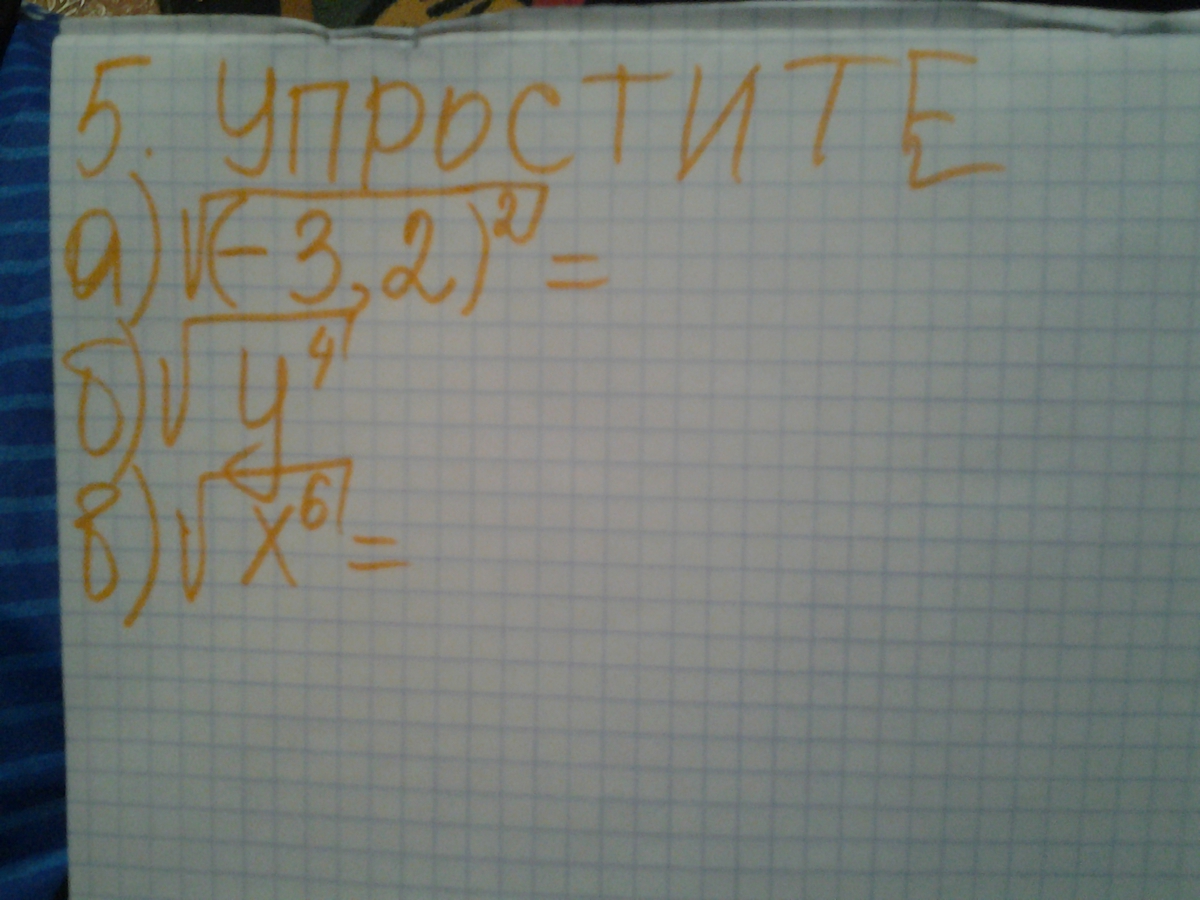 5. УПРОСТИТЕ
а) √(-3,2)² =
б) √y⁴
в) √x⁶ =